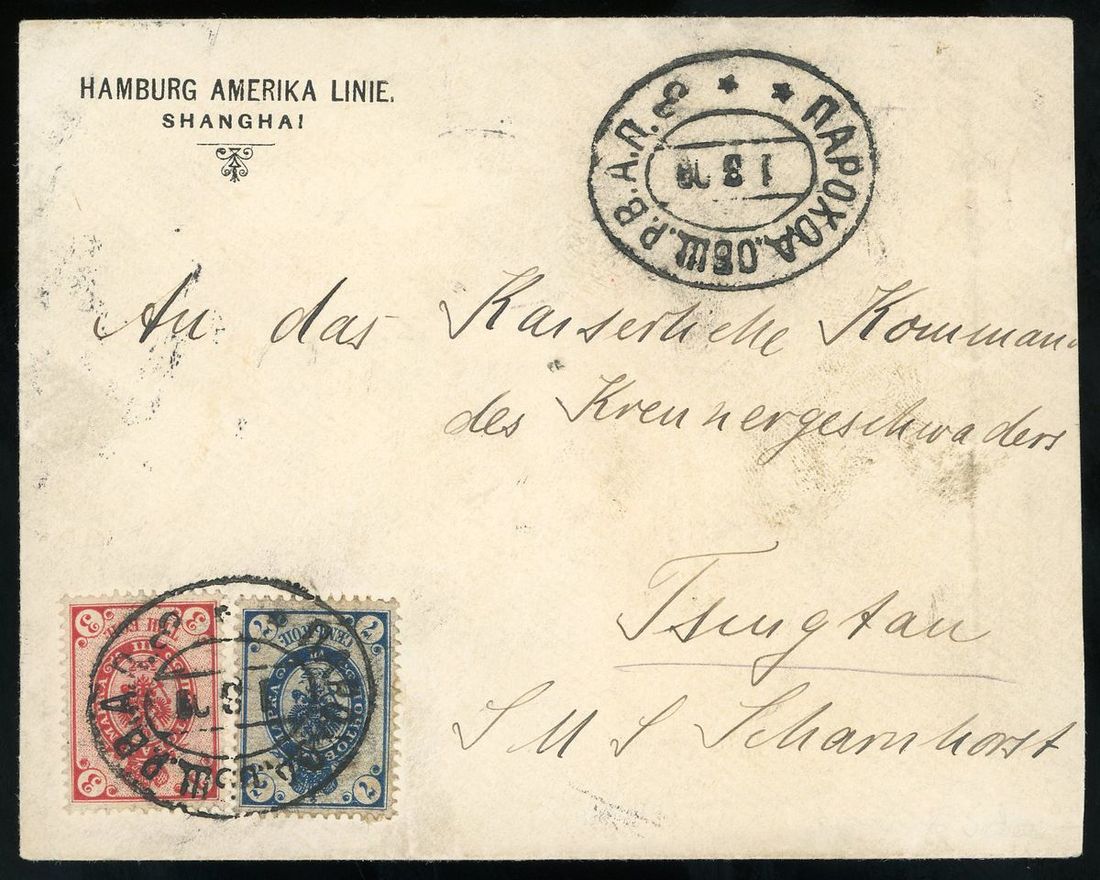 HAMBURG AMERIKA LINIE.
SHANGHAI
ПАРОХОД.ОБЩ.Р.В.А.П. Э
1 3 09
An das Kaiserliche Komman
des Kreuzergeschwaders
Tsingtau
S M S Scharnhorst
3 3
МАРКА
3 3
7 7
7 7
Р.В.А.П Э